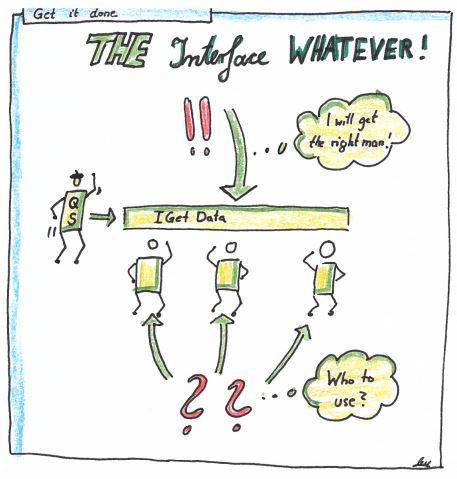 Get it done
THE Interface WHATEVER!
!!
I will get
the right man!
Q
S
I Get Data
? ?
Who to
use?